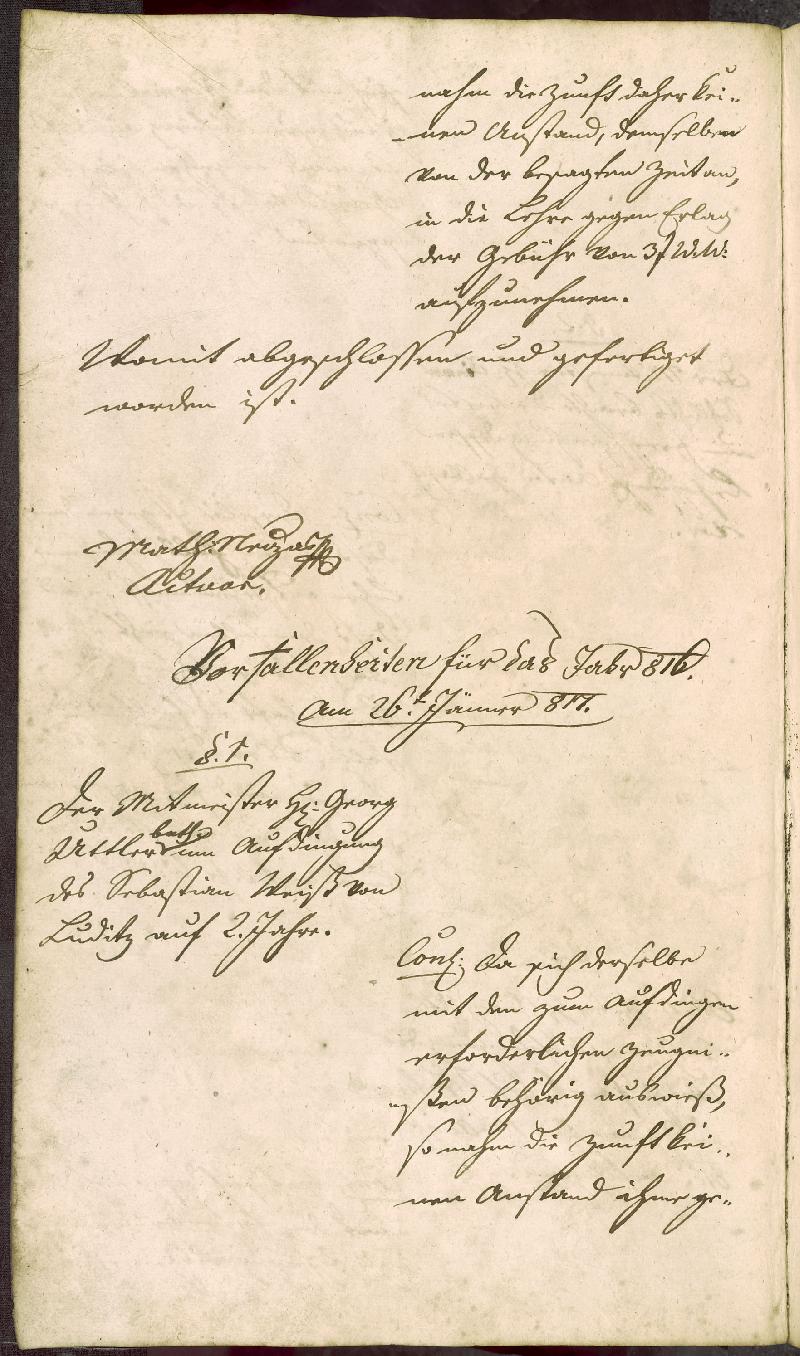 nahm die Zunft daher kei-
nen Anstand, demselben
von der besagten Zeit an,
in die Lehre gegen Erlag
der Gebühr von 3 f W.W.
aufzunehmen.
Womit abgeschlossen und gefertiget
worden ist.
Math:
Actuar.
Vorfallenheiten für das Jahr 816.
Am 26t. Jänner 817.
§. 1.
Der Mitmeister H: Georg
bath
Uttler um Aufdingung
des Sebastian Weiß von
Luditz auf 2. Jahre.
Concl: Da sich derselbe
mit den zum Aufdingen
erforderlichen Zeugni-
ssen behörig auswieß,
so nahm die Zunft kei-
nen Anstand ihme ge-